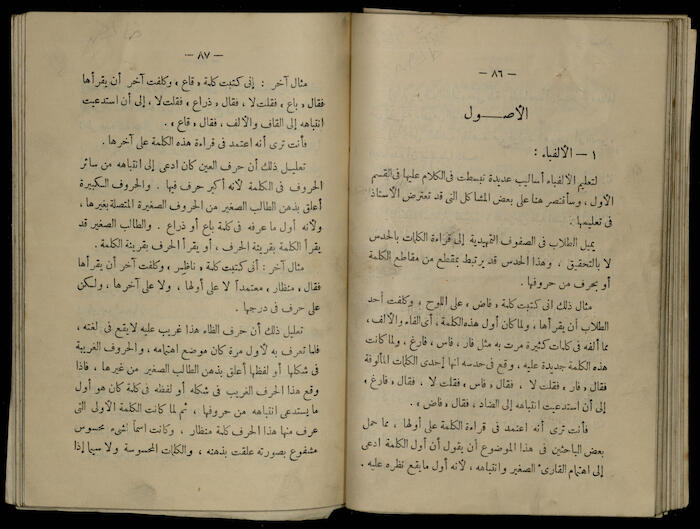 — ٨٦ —
الأصــول
١ – الألفباء :
لتعليم الألفباء أساليب عديدة تبسطت فى الكلام عليها فى القسم
الأول ، وسأقتصر هنا على بعض المشاكل التى قد تعترض الأستاذ
فى تعليمها .
يميل الطلاب فى الصفوف التمهيدية إلى قراءة الكلمات بالحدس
لا بالتحقيق ، وهذا الحدس قد يرتبط بمقطع من مقاطع الكلمة
أو بحرف من حروفها .
مثال ذلك انى كتبت كلمة « فاض » على اللوح ، وكلفت أحد
الطلاب أن يقرأها ، ولما كان أول هذه الكلمة ، أى الفاء والألف ،
مما ألفه فى كلمات كثيرة مرت به مثل فار ، فاس ، فارغ ، ولما كانت
هذه الكلمة جديدة عليه ، وقع فى حدسه انها إحدى الكلمات المألوفة
فقال « فار » فقلت لا ، فقال « فاس » فقلت لا ، فقال « فارغ »
إلى أن استدعيت انتباهه إلى الضاد ، فقال « فاض » .
فأنت ترى أنه اعتمد فى قراءة الكلمة على أولها ، مما حمل
بعض الباحثين فى هذا الموضوع أن يقول أن أول الكلمة ادعى
إلى اهتمام القارئ الصغير وانتباهه ، لأنه أول ما يقع نظره عليه .
— ٨٧ —
مثال آخر : إنى كتبت كلمة « قاع » وكلفت آخر أن يقرأها
فقال « باع » فقلت لا ، فقال « ذراع » فقلت لا ، إلى أن استدعيت
انتباهه إلى القاف والألف ، فقال « قاع » .
فأنت ترى أنه اعتمد فى قراءة هذه الكلمة على آخرها .
تعليل ذلك أن حرف العين كان ادعى إلى انتباهه من سائر
الحروف فى الكلمة لأنه أكبر حرف فيها ، والحروف الكبيرة
أعلق بذهن الطالب الصغير من الحروف الصغيرة المتصلة بغيرها ،
ولأنه أول ما عرفه فى كلمة باع أو ذراع . والطالب الصغير قد
يقرأ الكلمة بقرينة الحرف ، أو يقرأ الحرف بقرينة الكلمة .
مثال آخر : أنى كتبت كلمة « ناظير » وكلفت آخر أن يقرأها
فقال « منظار » معتمداً لا على أولها ، ولا على آخرها ، ولكن
على حرف فى درجها .
تعليل ذلك أن حرف الظاء هذا غريب عليه لا يقع فى لغته ،
فلما تعرف به لأول مرة كان موضع اهتمامه ، والحروف الغريبة
فى شكلها أو لفظها أعلق بذهن الطالب الصغير من غيرها ، فاذا
وقع هذا الحرف الغريب فى شكله أو لفظه فى كلمة كان هو أول
ما يستدعى انتباهه من حروفها ، ثم لما كانت الكلمة الأولى التى
عرف منها هذا الحرف كلمة منظار ، وكانت اسماً لشىء محسوس
مشفوع بصورته علقت بذهنه ، والكلمات المحسوسة ولا سيما إذا